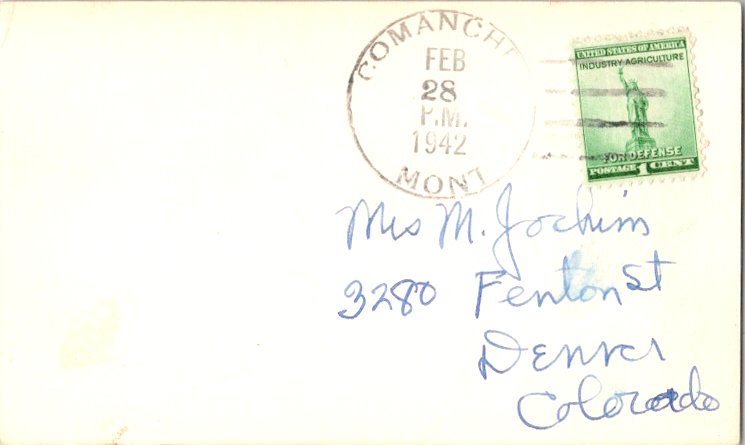 COMANCHE
FEB
28
P.M.
1942
MONT
UNITED STATES OF AMERICA
INDUSTRY AGRICULTURE
FOR DEFENSE
POSTAGE 1 CENT
Mrs M. Jochim
3280 Fenton St
Denver
Colorado